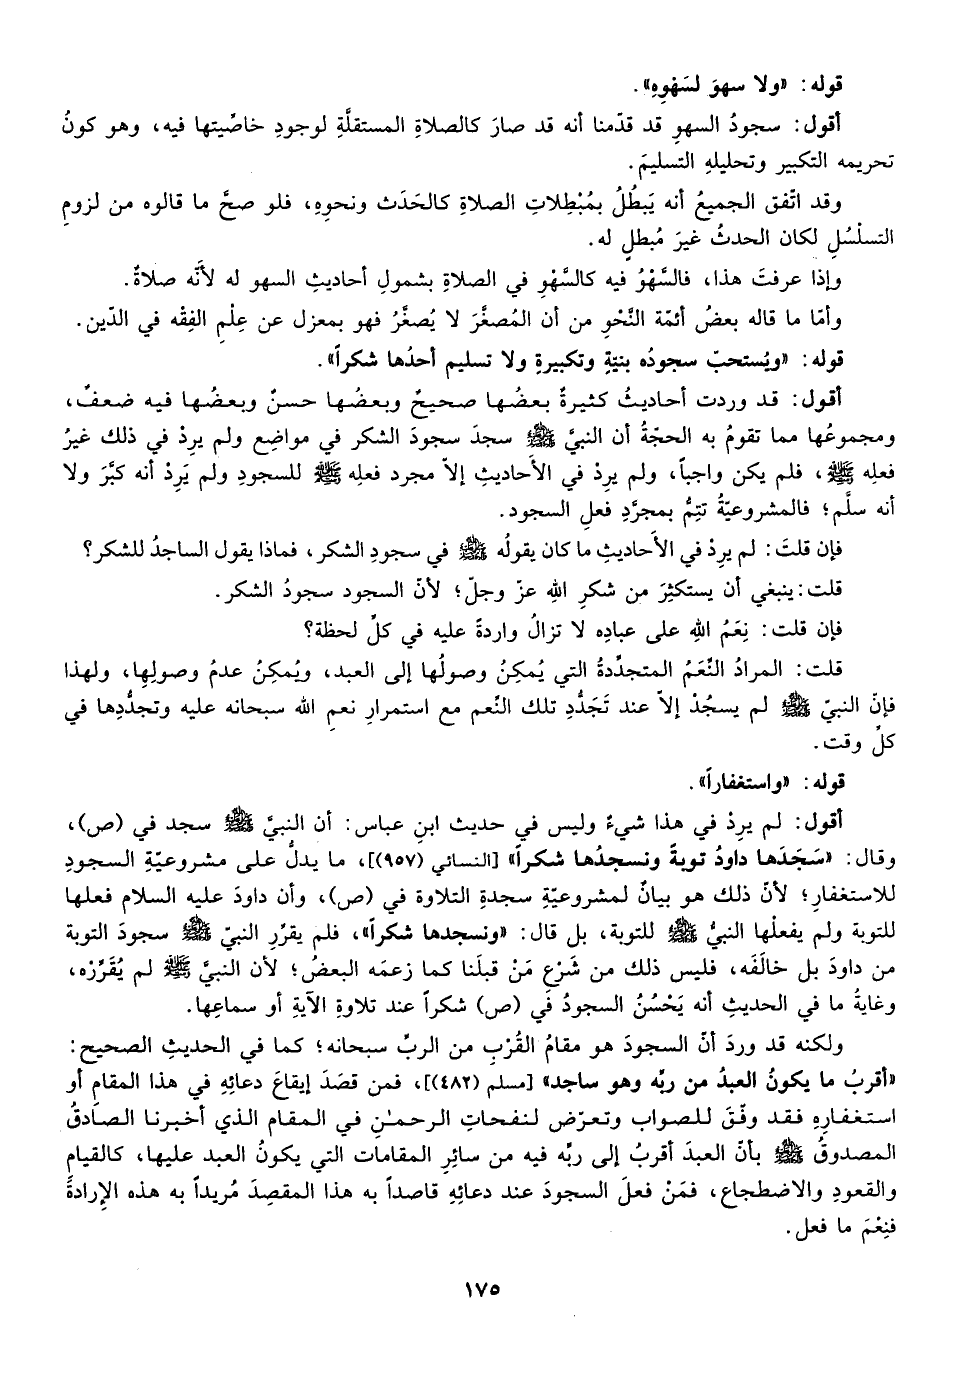 قوله: «ولا سهوَ لسَهْوِهِ».
أقول: سجودُ السهوِ قد قدّمنا أنه قد صارَ كالصلاةِ المستقلَّةِ لوجودِ خاصِّيتها فيه، وهو كونُ
تحريمه التكبير وتحليلهِ التسليمَ.
وقد اتّفق الجميعُ أنه يَبطُلُ بمُبْطِلاتِ الصلاةِ كالحَدَث ونحوِهِ، فلو صحَّ ما قالوه من لزومِ
التسلْسُلِ لكان الحدثُ غيرَ مُبطلٍ له.
وإذا عرفتَ هذا، فالسَّهْوُ فيه كالسَّهْوِ في الصلاةِ بشمولِ أحاديثِ السهو له لأنَّه صلاةٌ.
وأمّا ما قاله بعضُ أئمّة النَّحْوِ من أن المُصغَّرَ لا يُصغَّرُ فهو بمعزل عن عِلْمِ الفِقْه في الدّين.
قوله: «ويُستحبّ سجودُه بنيّةٍ وتكبيرةٍ ولا تسليم أحدُها شكراً».
أقول: قد وردت أحاديثُ كثيرةٌ بعضُها صحيحٌ وبعضُها حسنٌ وبعضُها فيه ضعفٌ،
ومجموعُها مما تقومُ به الحجّةُ أن النبيَّ ﷺ سجدَ سجودَ الشكر في مواضِع ولم يرِدْ في ذلك غيرُ
فعلِه ﷺ، فلم يكن واجباً، ولم يرِدْ في الأَحاديثِ إلاّ مجرد فعلِه ﷺ للسجودِ ولم يَرِدْ أنه كبَّرَ ولا
أنه سلَّم؛ فالمشروعيّةُ تتِمُّ بمجرَّدِ فعلِ السجود.
فإن قلتَ: لم يرِدْ في الأَحاديثِ ما كان يقولُه ﷺ في سجودِ الشكر، فماذا يقول الساجدُ للشكر؟
قلت: ينبغي أن يستكثِرَ من شكرِ اللهِ عزّ وجلّ؛ لأنّ السجود سجودُ الشكر.
فإن قلت: نِعَمُ اللهِ على عبادِه لا تزالُ واردةً عليه في كلِّ لحظة؟
قلت: المرادُ النِّعَمُ المتجدِّدةُ التي يُمكِنُ وصولُها إلى العبد، ويُمكِنُ عدمُ وصولِها، ولهذا
فإنّ النبيّ ﷺ لم يسجُدْ إلاّ عند تَجَدُّدِ تلك النِّعم مع استمرارِ نعمِ الله سبحانه عليه وتجدُّدِها في
كلِّ وقت.
قوله: «واستغفاراً».
أقول: لم يرِدْ في هذا شيءٌ وليس في حديث ابنِ عباس: أن النبيَّ ﷺ سجد في (ص)،
وقال: «سَجَدَها داودُ توبةً ونسجدُها شكراً» [النسائي (٩٥٧)]، ما يدلُّ على مشروعيّةِ السجودِ
للاستغفارِ؛ لأنّ ذلك هو بيانٌ لمشروعيّةِ سجدةِ التلاوة في (ص)، وأن داودَ عليه السلام فعلها
للتوبة ولم يفعلْها النبيُّ ﷺ للتوبة، بل قال: «ونسجدها شكراً»، فلم يقرِّرِ النبيّ ﷺ سجودَ التوبة
من داودَ بل خالَفَه، فليس ذلك من شَرْعِ مَنْ قبلَنا كما زعمَه البعضُ؛ لأن النبيَّ ﷺ لم يُقَرِّرْه،
وغايةُ ما في الحديثِ أنه يَحْسُنُ السجودُ في (ص) شكراً عند تلاوةِ الآيةِ أو سماعِها.
ولكنه قد وردَ أنّ السجودَ هو مقامُ القُرْبِ من الربِّ سبحانه؛ كما في الحديثِ الصحيح:
«أقربُ ما يكونُ العبدُ من ربِّه وهو ساجد» [مسلم (٤٨٢)]، فمن قصَدَ إيقاعَ دعائِهِ في هذا المقامِ أو
استغفارِهِ فقد وفّقَ للصواب وتعرّض لنفحاتِ الرحمٰنِ في المقام الذي أخبرنا الصادقُ
المصدوقُ ﷺ بأنّ العبدَ أقربُ إلى ربِّه فيه من سائرِ المقامات التي يكونُ العبد عليها، كالقيامِ
والقعودِ والاضطجاع، فمَنْ فعلَ السجودَ عند دعائِهِ قاصداً به هذا المقصِدَ مُريداً به هذه الإِرادةَ
فنِعْمَ ما فعل.
١٧٥